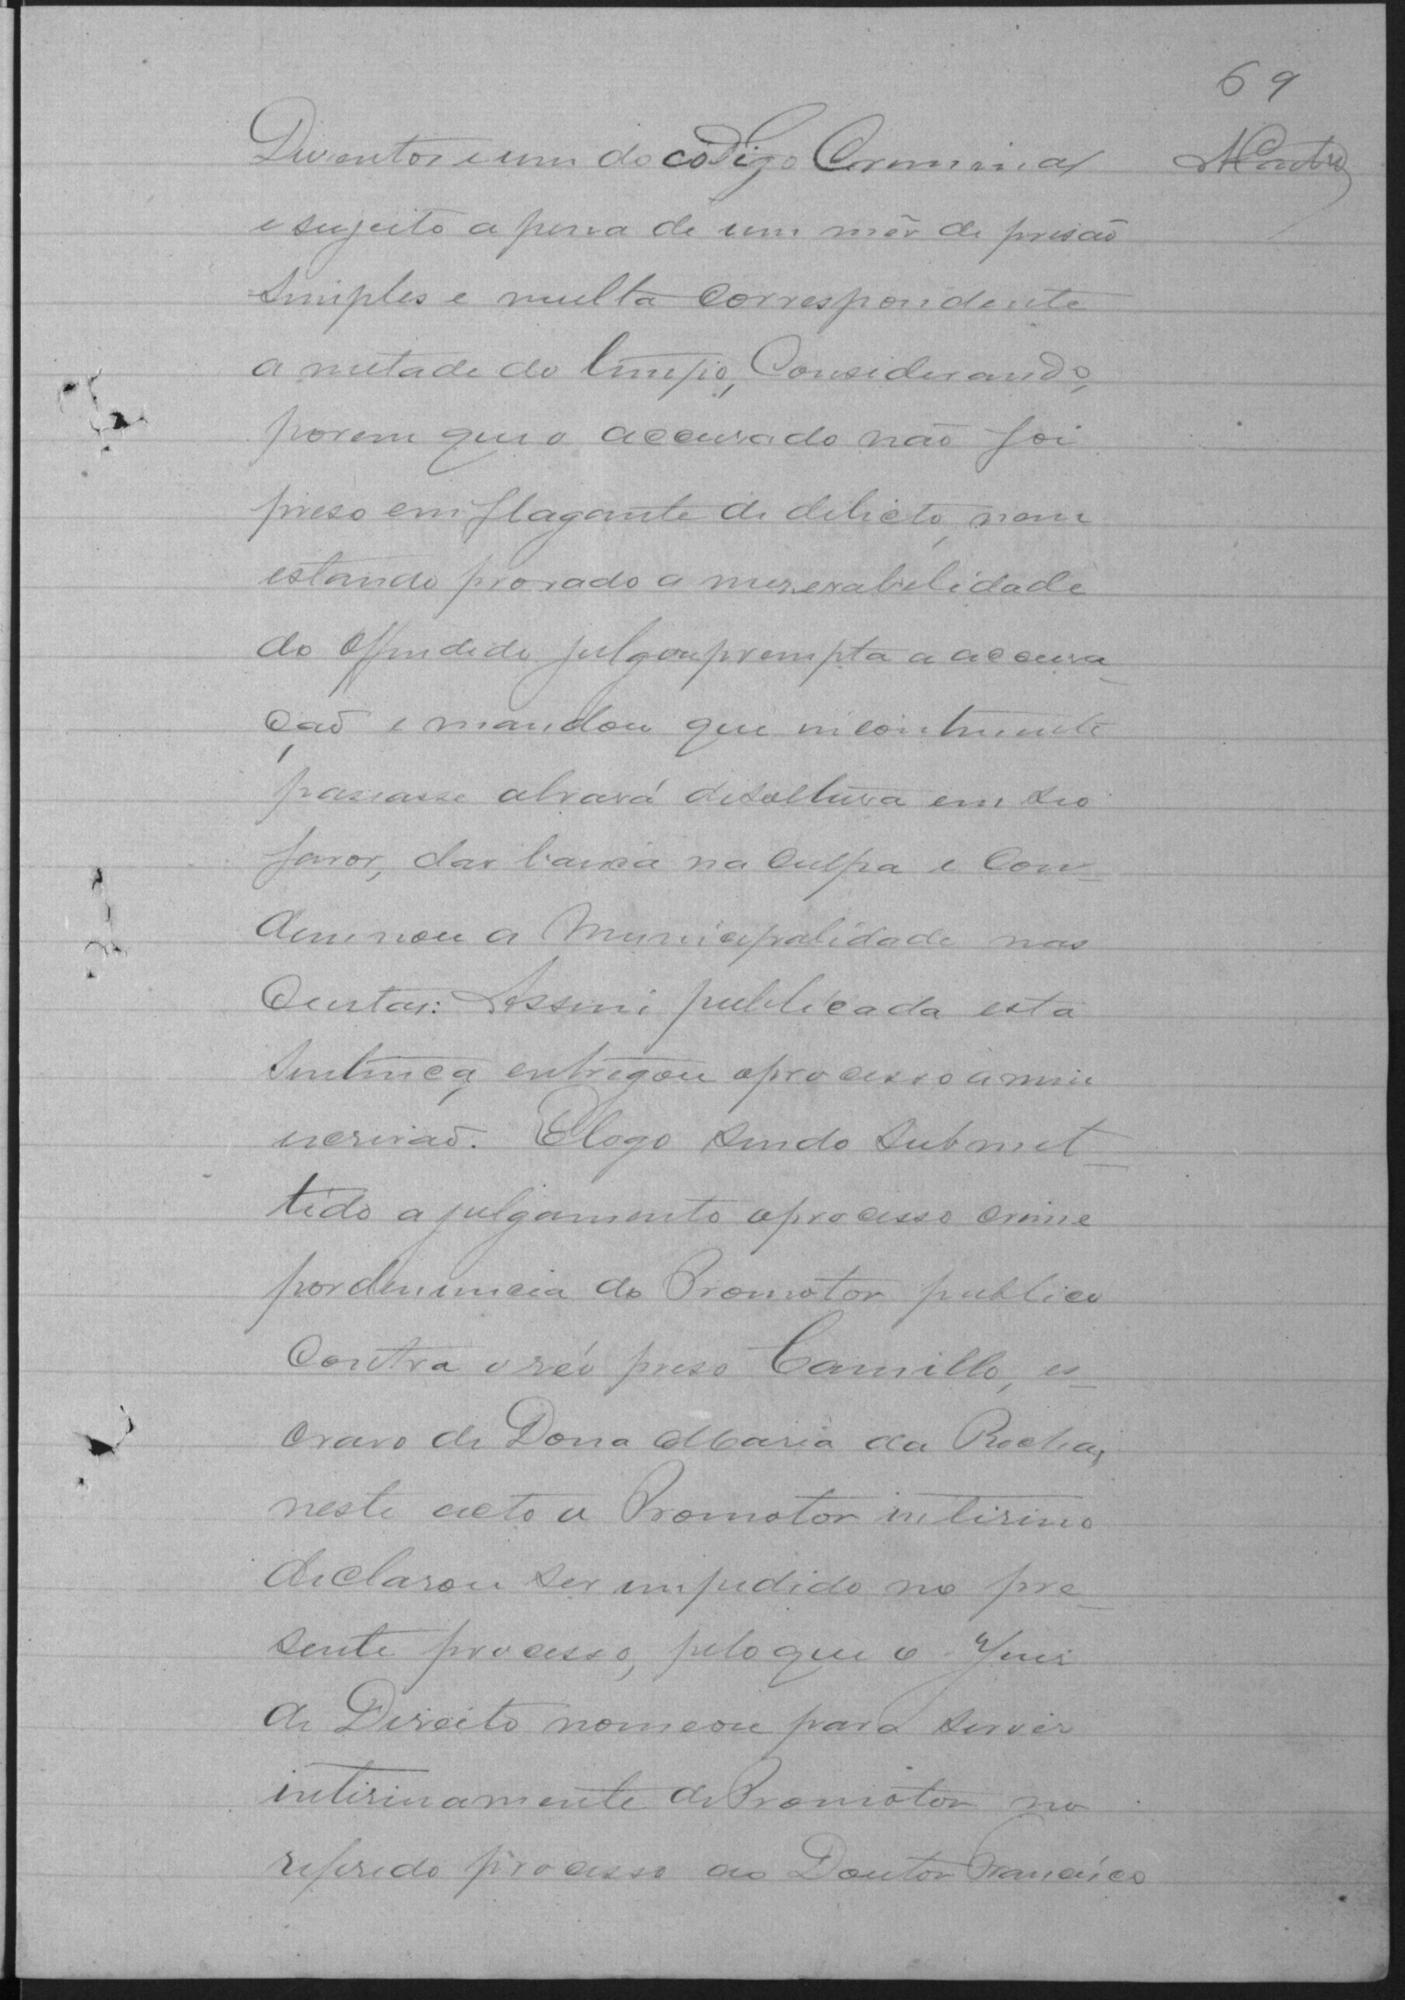 69
Duzentos e um do codigo Criminal
MCastro
e sujeito a pena de um mês de prisão
simples e multa correspondente
a metade do tempo, Considerando,
porem que o accusado não foi
preso em flagante de delicto, nem
estando provado a meserabelidade
do offendido julgou prempta a accusa-
ção e mandou que incontinente
passasse alvará de soltura em seo
favor, dar baixa na culpa e con-
demnou a Municipalidade nas
Custas: Assim publicada esta
sentença entregou o processo a mim
escrivão. E logo sendo submet-
tido a julgamento o processo crime
por denuncia do Promotor publico
contra o réo preso Camillo, es-
cravo de Dona Maria da Rocha,
neste acto o Promotor interino
declarou ser impedido no pre-
sente processo, pelo que o Juis
de Direito nomeou para servir
interinamente de Promotor no
referido processo ao Doutor Francisco